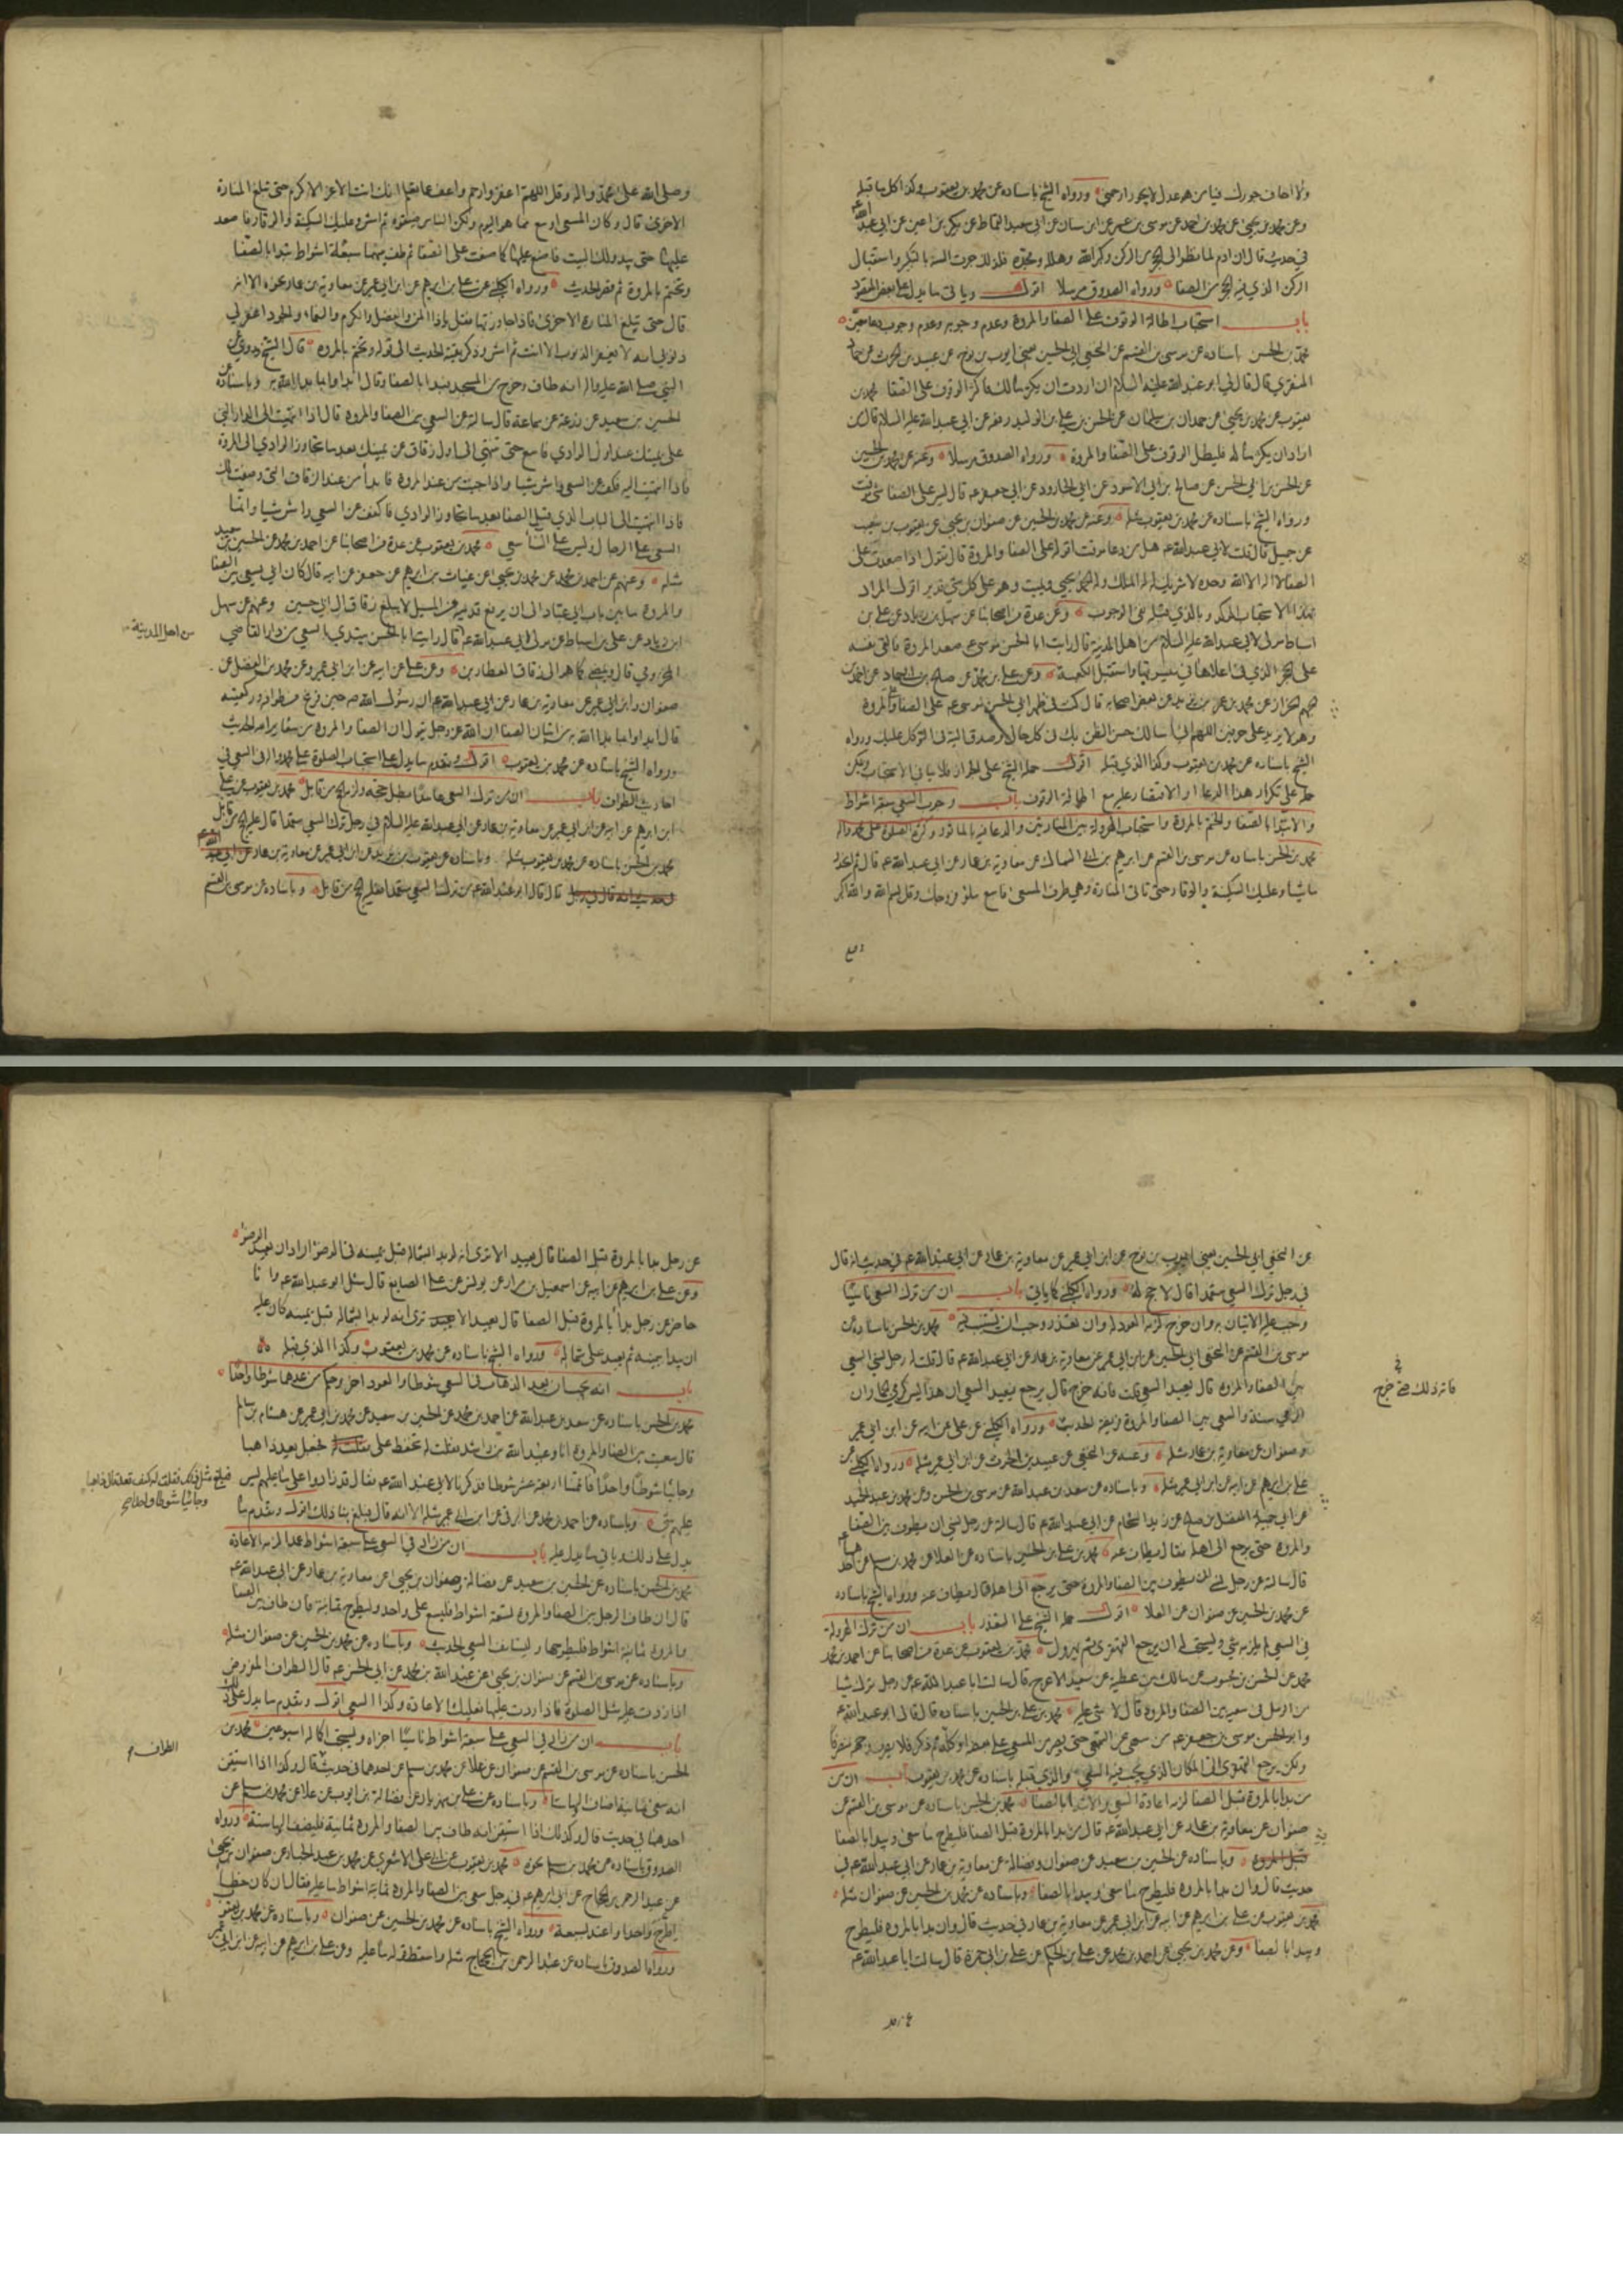 ولا اخاف جورك فيا من هو عدل لا يجور ارحمني ورواه الشيخ باسناده عن محمد بن يعقوب وكذا كل ما قبله
وعن محمد بن يحيى عن محمد بن احمد عن موسى بن عمر عن ابن سنان عن ابي سعيد القماط عن بكير بن اعين عن ابي عبد الله ع
في حديث قال ان ادم لما نظر الى الحجر من الركن وكبر الله وهلله ومجده فلذلك جرت السنة بالتكبير واستقبال
الركن الذي فيه الحجر من الصفا ورواه الصدوق مرسلا اقول وياتي ما يدل على بعض المقصود
باب استحباب اطالة الوقوف على الصفا والمروة وعدم وجوبه وعدم وجوب دعاء معين
محمد بن الحسن باسناده عن موسى بن القسم عن النخعي ابي الحسين يعني ايوب بن نوح عن عبيد بن الحرث عن حماد
المنقري قال قال لي ابو عبد الله عليه السلام ان اردت ان يكثر مالك فاكثر الوقوف على الصفا محمد بن
يعقوب عن محمد بن يحيى عن حمدان بن سليمان عن الحسن بن علي بن الوليد رفعه عن ابي عبد الله عليه السلام قال من
اراد ان يكثر ماله فليطل الوقوف على الصفا والمروة ورواه الصدوق مرسلا وعنه عن محمد بن الحسين
عن الحسن بن ابي الحسن عن صالح بن ابي الاسود عن ابي الجارود عن ابي جعفر ع قال ليس على الصفا شئ موقت
ورواه الشيخ باسناده عن محمد بن يعقوب مثله وعنه عن محمد بن الحسين عن صفوان بن يحيى عن يعقوب بن شعيب
عن جميل قال قلت لابي عبد الله ع هل من دعاء موقت اقوله على الصفا والمروة قال تقول اذا صعدت على
الصفا لا اله الا الله وحده لا شريك له له الملك وله الحمد يحيي ويميت وهو على كل شئ قدير اقول المراد
بهذا الاستحباب المذكور بالذي قبله نفي الوجوب وعن عدة من اصحابنا عن سهل بن زياد عن علي بن
اسباط عن مولى لابي عبد الله عليه السلام من اهل المدينة قال رايت ابا الحسن موسى ع صعد المروة فالقى نفسه
على الحجر الذي في اعلاها في ميسرتها واستقبل الكعبة وعن علي بن محمد عن صالح بن ابي حماد عن احمد بن
الجهم الخزاز عن محمد بن عمر بن يزيد عن بعض اصحابه قال كنت في ظهر ابي الحسن موسى ع على الصفا والمروة
وهو لا يزيد على حرفين اللهم اني اسالك حسن الظن بك في كل حال وصدق النية في التوكل عليك ورواه
الشيخ باسناده عن محمد بن يعقوب وكذا الذي قبله اقول حمله الشيخ على الجواز فلا ينافي الاستحباب ويمكن
حمله على تكرار هذا الدعاء او الاقتصار عليه مع اطالة الوقوف باب وجوب السعي سبعة اشواط
والابتداء بالصفا والختم بالمروة واستحباب الهرولة بين المنارتين والدعاء فيه بالماثور وكثرة الصلوة على محمد واله
محمد بن الحسن باسناده عن موسى بن القسم عن ابرهيم بن ابي السماك عن معاوية بن عمار عن ابي عبد الله ع قال ثم انحدر
ماشيا وعليك السكينة والوقار حتى تاتي المنارة وهي طرف المسعى فاسع ملؤ فروجك وقل بسم الله والله اكبر
وصلى الله على محمد واله وقل اللهم اغفر وارحم واعف عما تعلم انك انت الاعز الاكرم حتى تبلغ المنارة
الاخرى قال وكان المسعى اوسع مما هو اليوم ولكن الناس ضيقوه ثم امش وعليك السكينة والوقار فاصعد
عليها حتى يبدو لك البيت فاصنع عليها كما صنعت على الصفا ثم طف بينهما سبعة اشواط تبدا بالصفا
وتختم بالمروة ثم قصر الحديث ورواه الكليني عن علي بن ابرهيم عن ابيه عن ابن ابي عمير عن معاوية بن عمار نحوه الا انه
قال حتى تبلغ المنارة الاخرى فاذا جاوزتها فقل يا ذا المن والفضل والكرم والنعماء والجود اغفر لي
ذنوبي انه لا يغفر الذنوب الا انت ثم امش وذكر بقية الحديث الى قوله وتختم بالمروة قال الشيخ وروي عن
النبي صلى الله عليه واله انه طاف وخرج من المسجد فبدا بالصفا وقال ابداوا بما بدا الله به وباسناده عن
الحسين بن سعيد عن زرعة عن سماعة قال سالته عن السعي بين الصفا والمروة قال اذا انتهيت الى الدار التي
على يمينك عند اول الوادي فاسع حتى تنتهي الى اول زقاق عن يمينك بعد ما تجاوز الوادي الى المروة
فاذا انتهيت اليه فكف عن السعي وامش مشيا واذا جئت من عند المروة فابدأ من عند الزقاق الذي وصفت لك
فاذا انتهيت الى الباب الذي قبل الصفا بعد ما تجاوز الوادي فاكفف عن السعي وامش مشيا وانما
السعي على الرجال وليس على النسآء سعي محمد بن يعقوب عن عدة من اصحابنا عن احمد بن محمد عن الحسين بن سعيد
مثله وعنهم عن احمد بن محمد عن محمد بن يحيى عن غياث بن ابرهيم عن جعفر عن ابيه قال كان ابي يسعى بين الصفا
والمروة ما بين باب ابن عباد الى ان يرفع قدميه من المسيل لا يبلغ زقاق ال ابي حسين وعنهم عن سهل
ابن زياد عن علي بن اسباط عن مولى لابي عبد الله ع قال رايت ابا الحسن يبتدي السعي من دار القاضي
من اهل المدينة
المخزومي قال ويمضي كما هو الى زقاق العطارين وعن علي عن ابيه عن ابن ابي عمير وعن محمد بن الفضل عن
صفوان وابن ابي عمير عن معاوية بن عمار عن ابي عبد الله ع ان رسول الله ص حين فرغ من طوافه وركعتيه
قال ابداوا بما بدا الله به من اتيان الصفا ان الله عز وجل يقول ان الصفا والمروة من شعاير الله الحديث
ورواه الشيخ باسناده عن محمد بن يعقوب اقول وتقدم ما يدل على استحباب الصلوة على محمد واله في السعي في
احاديث الطواف باب ان من ترك السعي عامدا بطل حجه ولزمه الحج من قابل محمد بن يعقوب عن علي
ابن ابرهيم عن ابيه عن ابن ابي عمير عن معاوية بن عمار عن ابي عبد الله عليه السلام في رجل ترك السعي متعمدا قال عليه الحج من قابل
محمد بن الحسن باسناده عن محمد بن يعقوب مثله وباسناده عن يعقوب بن يزيد عن ابن ابي عمير عن معاوية بن عمار عن ابي عبد الله ع
قال قال ابو عبد الله ع من ترك السعي متعمدا فعليه الحج من قابل وباسناده عن موسى بن القسم
عن النخعي ابي الحسين يعني ايوب بن نوح عن ابن ابي عمير عن معاوية بن عمار عن ابي عبد الله ع في حديث انه قال
في رجل ترك السعي متعمدا قال لا حج له ورواه الكليني كما ياتي باب ان من ترك السعي ناسيا
وجب عليه الاتيان به وان خرج لزمه العود له وان تعذر وجب ان يستنيب محمد بن الحسن باسناده عن
موسى بن القسم عن النخعي ابي الحسين عن ابن ابي عمير عن معاوية بن عمار عن ابي عبد الله ع قال قلت له رجل نسي السعي
بين الصفا والمروة قال يعيد السعي قلت فانه خرج قال يرجع فيعيد السعي ان هذا ليس كرمي الجمار ان
فاته ذلك حتى خرج
الرمي سنة والسعي بين الصفا والمروة فريضة الحديث ورواه الكليني عن علي عن ابيه عن ابن ابي عمير
وصفوان عن معاوية بن عمار مثله وعنه عن النخعي عن عبيد بن الحرث عن ابن ابي عمير مثله ورواه الكليني عن
علي بن ابرهيم عن ابيه عن ابن ابي عمير مثله وباسناده عن سعد بن عبد الله عن موسى بن الحسن وعن محمد بن عبد الحميد
عن ابي جميلة المفضل بن صالح عن زيد الشحام عن ابي عبد الله ع قال سالته عن رجل نسي ان يطوف بين الصفا
والمروة حتى يرجع الى اهله فقال يطاف عنه محمد بن علي بن الحسين باسناده عن العلا عن محمد بن مسلم عن احدهما ع
قال سالته عن رجل نسي ان يطوف بين الصفا والمروة حتى يرجع الى اهله قال يطاف عنه ورواه الشيخ باسناده
عن محمد بن الحسين عن صفوان عن العلا اقول حمله الشيخ على التعذر باب ان من ترك الهرولة
في السعي لم يلزمه شئ ويستحب له ان يرجع القهقرى ثم يهرول محمد بن يعقوب عن عدة من اصحابنا عن احمد بن محمد
محمد عن الحسن بن محبوب عن مالك بن عطية عن سعيد الاعرج قال سالت ابا عبد الله ع عن رجل ترك شيئا
من الرمل في سعيه بين الصفا والمروة قال لا شئ عليه محمد بن علي بن الحسين باسناده قال قال ابو عبد الله ع
وابو الحسن موسى بن جعفر ع من سهى عن السعي حتى يصير من المسعى على بعضه او كله ثم ذكر فلا يصرف وجهه منصرفا
ولكن يرجع القهقرى الى المكان الذي يجب فيه السعي والذي قبله باسناده عن محمد بن يعقوب باب ان من
من بدا بالمروة قبل الصفا لزمه اعادة السعي والابتداء بالصفا محمد بن الحسن باسناده عن موسى بن القسم عن
صفوان عن معاوية بن عمار عن ابي عبد الله ع قال من بدا بالمروة قبل الصفا فليطرح ما سعى ويبدا بالصفا
قبل المروة وباسناده عن الحسين بن سعيد عن صفوان وفضالة عن معاوية بن عمار عن ابي عبد الله ع في
حديث قال وان بدا بالمروة فليطرح ما سعى ويبدا بالصفا وباسناده عن محمد بن الحسين عن صفوان مثله
محمد بن يعقوب عن علي بن ابرهيم عن ابيه عن ابن ابي عمير عن معاوية بن عمار في حديث قال وان بدا بالمروة فليطرح
ويبدا بالصفا وعن محمد بن يحيى عن احمد بن محمد عن علي بن الحكم عن علي بن ابي حمزة قال سالت ابا عبد الله ع
عن رجل بدا بالمروة قبل الصفا قال يعيد الا ترى انه لو بدا بشماله قبل يمينه في الوضوء اراد ان يعيد الوضوء
وعن علي بن ابرهيم عن ابيه عن اسمعيل بن مرار عن يونس عن علي الصايغ قال سئل ابو عبد الله ع وانا
حاضر عن رجل بدأ بالمروة قبل الصفا قال يعيد الا ترى انه لو بدا بشماله قبل يمينه كان عليه
ان يبدا بيمينه ثم يعيد على شماله ورواه الشيخ باسناده عن محمد بن يعقوب وكذا الذي قبله
باب انه يحسب ان يعد الذهاب في السعي شوطا والعود اخر وحكم من عدهما شوطا واحدا
محمد بن الحسن باسناده عن سعد بن عبد الله عن احمد بن محمد عن الحسين بن سعيد عن محمد بن ابي عمير عن هشام بن سالم
قال سعيت بين الصفا والمروة انا وعبيد الله بن راشد فقلت له تحفظ على فجعل يعد ذاهبا
وجائيا شوطا واحدا فاتممنا اربعة عشر شوطا فذكرنا لابي عبد الله ع فقال قد زادوا على ما عليهم ليس
فبلغ مثل ذلك فقلت له كيف تعد فقال ذاهبا
وجائيا شوطا واحدا
عليهم شئ وباسناده عن احمد بن محمد عن البرقي عن ابن ابي عمير مثله الا انه قال فبلغ بنا ذلك اقول وتقدم ما
يدل على ذلك وياتي ما يدل عليه باب ان من زاد في السعي على سبعة اشواط عمدا لزمه الاعادة
محمد بن الحسن باسناده عن الحسين بن سعيد عن فضالة وصفوان بن يحيى عن معاوية بن عمار عن ابي عبد الله ع
قال ان طاف الرجل بين الصفا والمروة تسعة اشواط فليسع على واحد وليطرح ثمانية وان طاف بين الصفا
والمروة ثمانية اشواط فليطرحها وليستانف السعي الحديث وباسناده عن محمد بن الحسين عن صفوان مثله
وباسناده عن موسى بن القسم عن صفوان بن يحيى عن عبد الله بن محمد عن ابي الحسن ع قال الطواف المفروض
اذا زدت عليه مثل الصلوة فاذا زدت عليها فعليك الاعادة وكذا السعي اقول وتقدم ما يدل على ذلك
باب ان من زاد في السعي على سبعة اشواط ناسيا اجزاه ويستحب اكماله اسبوعين محمد بن
الحسن باسناده عن موسى بن القسم عن صفوان عن علا عن محمد بن مسلم عن احدهما في حديث قال وكذا اذا استيقن
الطواف
انه سعى ثمانية اضاف اليها ستا وباسناده عن علي بن مهزيار عن فضالة بن ايوب عن علا عن محمد بن مسلم عن
احدهما في حديث قال وكذلك اذا استيقن انه طاف بين الصفا والمروة ثمانية فليضف اليها ستة ورواه
الصدوق باسناده عن محمد بن مسلم نحوه محمد بن يعقوب عن ابي على الاشعري عن محمد بن عبد الجبار عن صفوان بن يحيى
عن عبد الرحمن بن الحجاج عن ابي ابرهيم ع في رجل سعى بين الصفا والمروة ثمانية اشواط ما عليه فقال ان كان خطا
اطرح واحدا واعتد بسبعة ورواه الشيخ باسناده عن محمد بن الحسين عن صفوان وباسناده عن محمد بن يعقوب
ورواه الصدوق باسناده عن عبد الرحمن بن الحجاج مثله واسقط قوله ما عليه وعن علي بن ابرهيم عن ابيه عن ابن ابي عمير